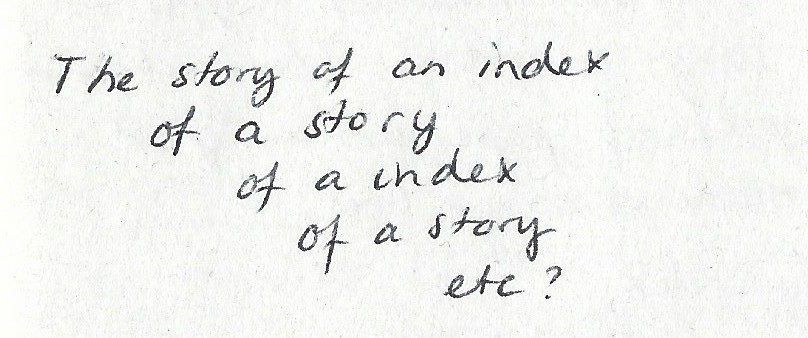 The story of an index
of a story
of a index
of a story
etc?